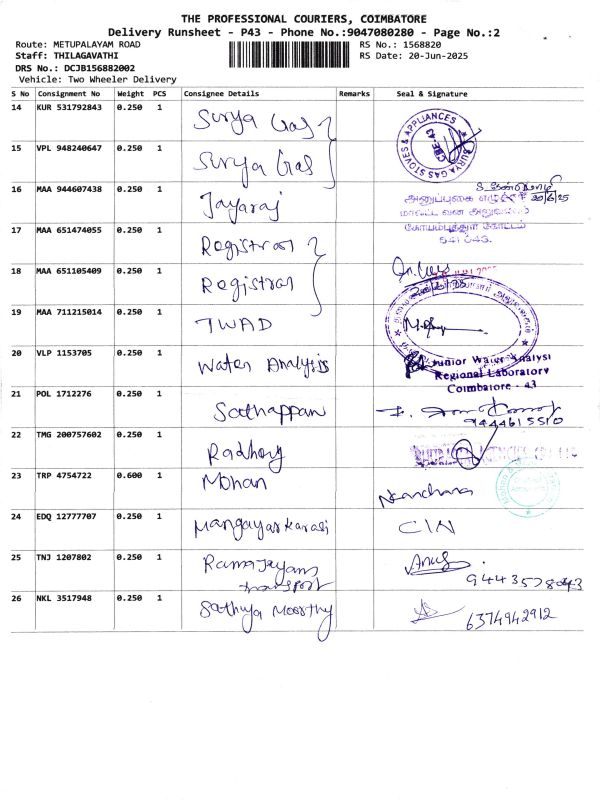 THE PROFESSIONAL COURIERS, COIMBATORE
Delivery Runsheet - P43 - Phone No.:9047080280 - Page No.:2
Route: METUPALAYAM ROAD
RS No.: 1568820
Staff: THILAGAVATHI
RS Date: 20-Jun-2025
DRS No.: DCJB156882002
Vehicle: Two Wheeler Delivery
S No Consignment No Weight PCS Consignee Details Remarks Seal & Signature
14 KUR 531792843 0.250 1 Surya Gas
SURYA GAS STOVES & APPLIANCES
CBE-43
15 VPL 948240647 0.250 1 Surya Gas
16 MAA 944607438 0.250 1 Jayaraj
20/6/25
17 MAA 651474055 0.250 1 Registrar
641 043.
18 MAA 651105409 0.250 1 Registrar
19 MAA 711215014 0.250 1 TWAD
20 VLP 1153705 0.250 1 Water Analysis
Junior Water Analyst
Regional Laboratory
Coimbatore - 43
21 POL 1712276 0.250 1 Sathappan
9444615510
22 TMG 200757602 0.250 1
23 TRP 4754722 0.600 1 Mohan
24 EDQ 12777707 0.250 1 Mangayarkarasi
25 TNJ 1207802 0.250 1 Ramajayam
transport
26 NKL 3517948 0.250 1 Sathya Moorthy
6374942912